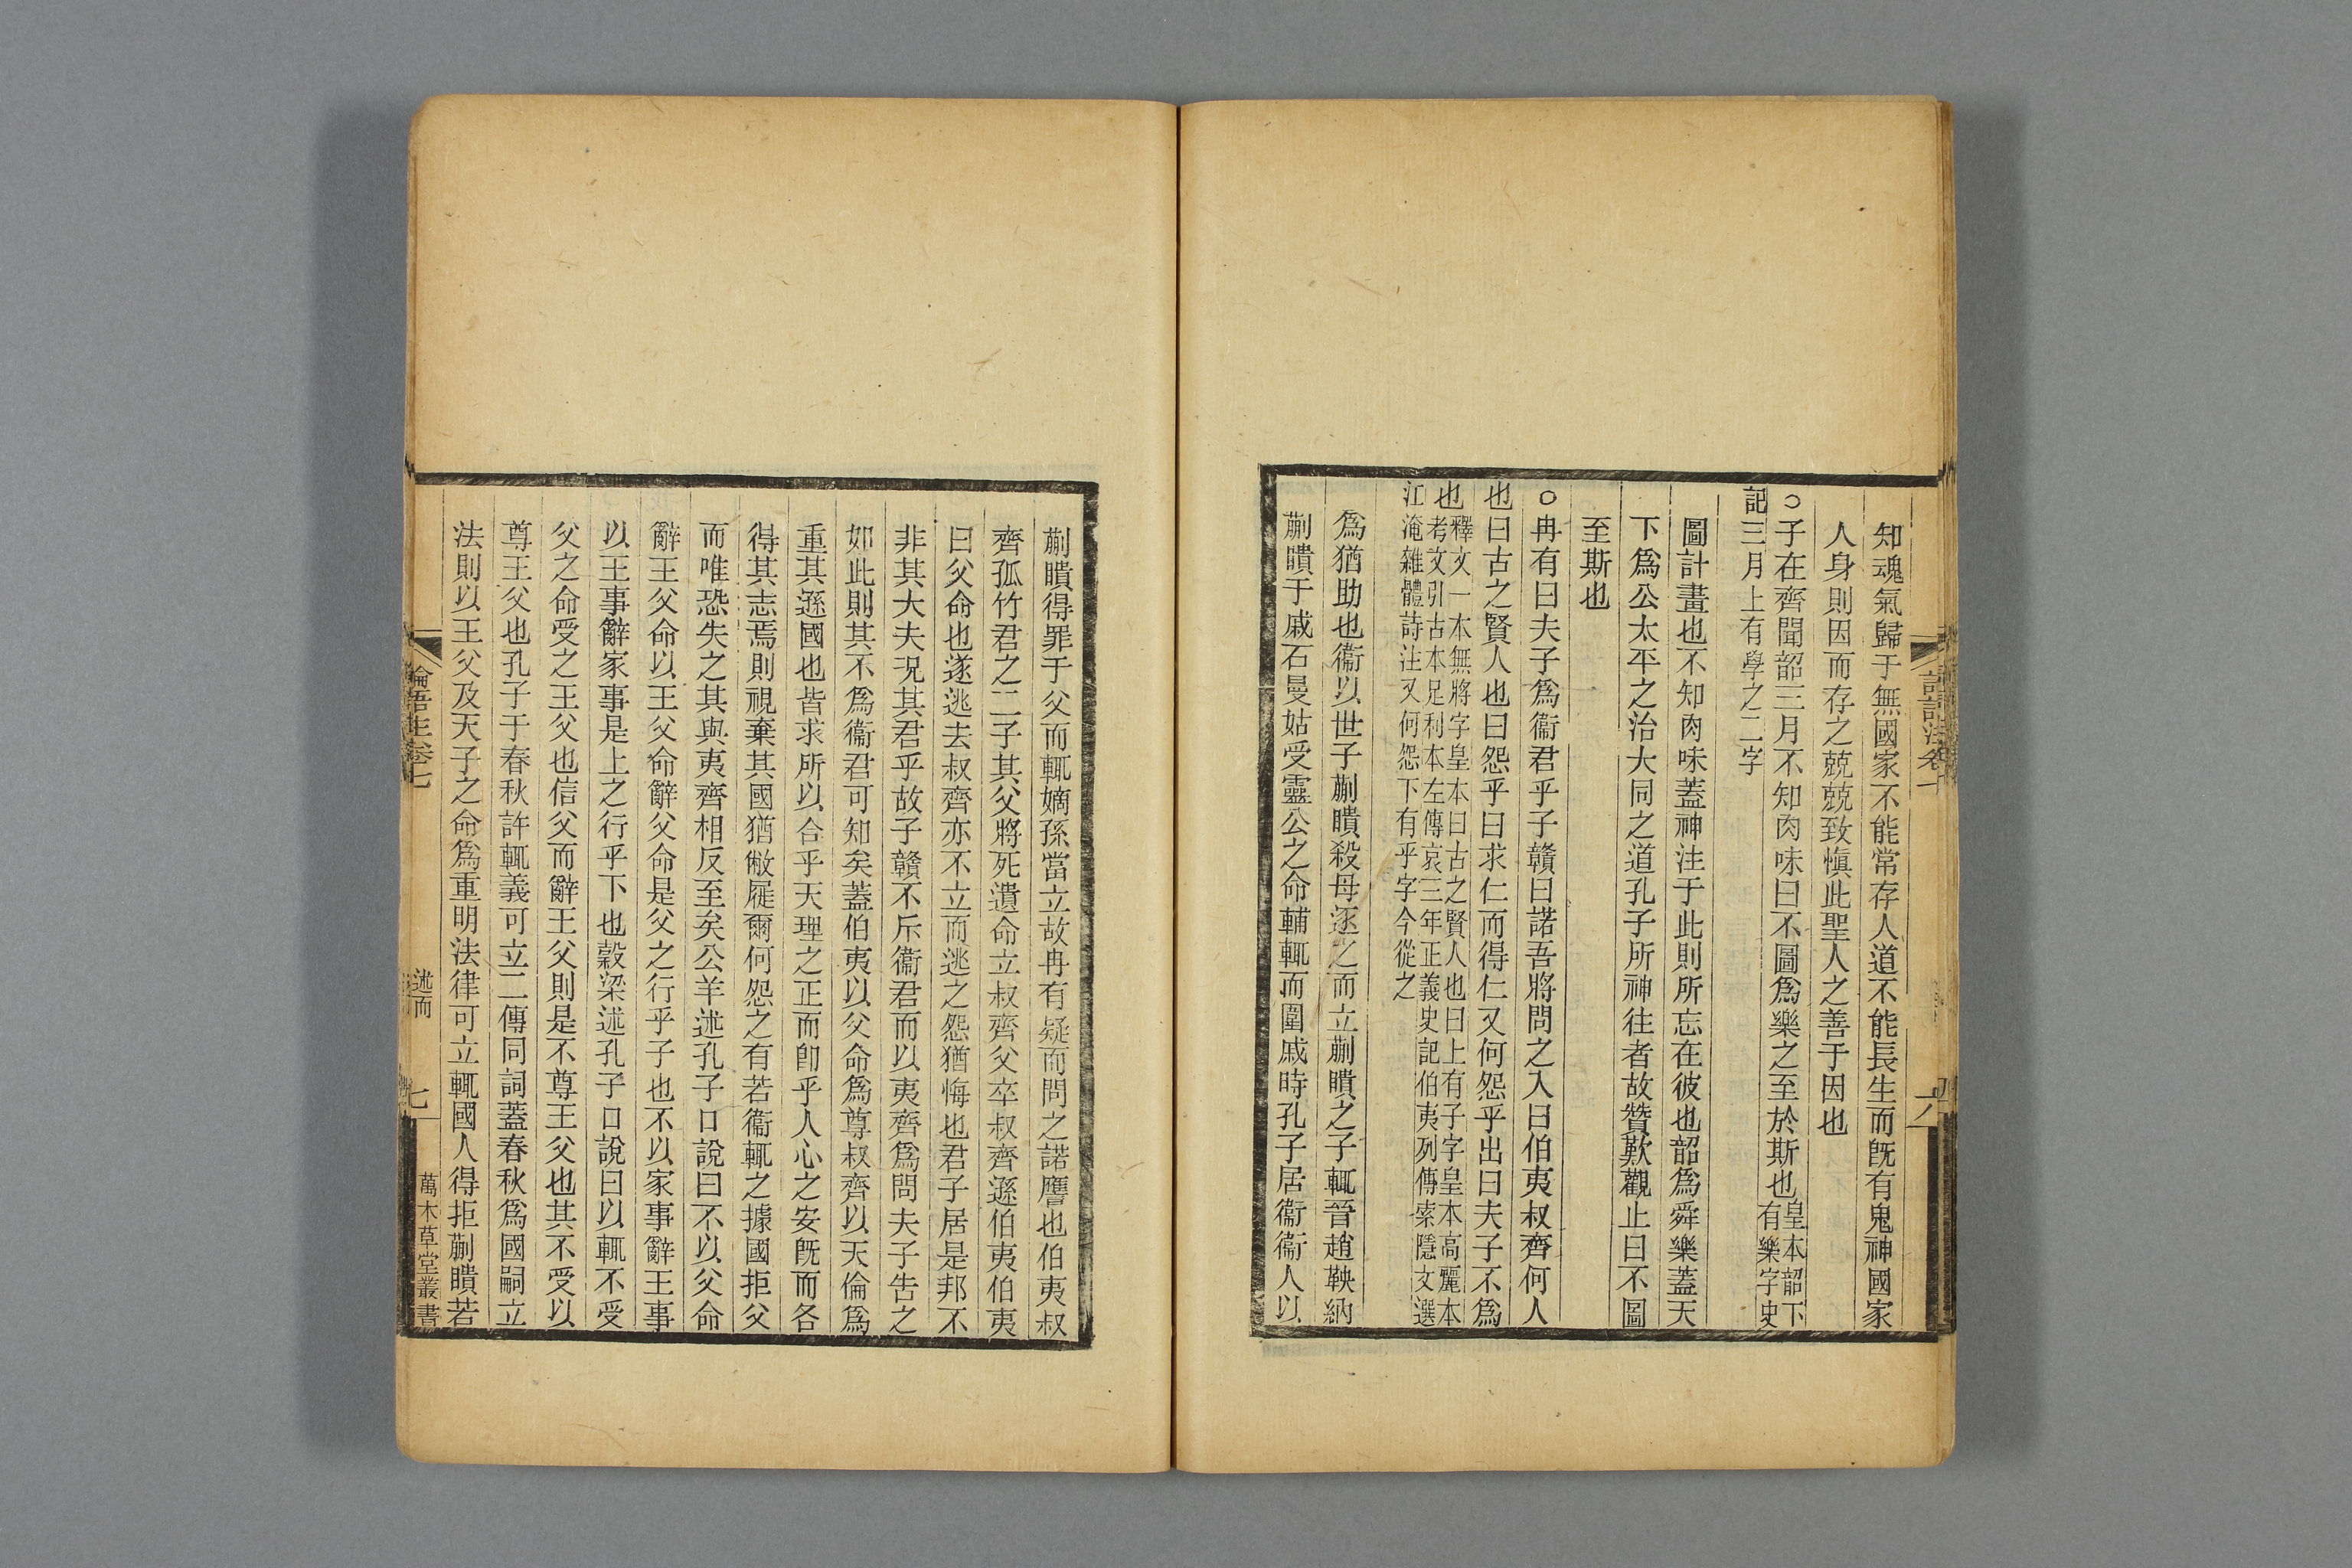 知魂氣歸于無國家不能常存人道不能長生而旣有鬼神國家
人身則因而存之兢兢致愼此聖人之善于因也
○子在齊聞韶三月不知肉味曰不圖爲樂之至於斯也皇本韶下有樂字史
記三月上有學之二字
圖計畫也不知肉味蓋神注于此則所忘在彼也韶爲舜樂蓋天
下爲公太平之治大同之道孔子所神往者故贊歎觀止曰不圖
至斯也
○冉有曰夫子爲衞君乎子贛曰諾吾將問之入曰伯夷叔齊何人
也曰古之賢人也曰怨乎曰求仁而得仁又何怨乎出曰夫子不爲
也釋文一本無將字皇本曰古之賢人也曰上有子字皇本高麗本
考文引古本足利本左傳哀三年正義史記伯夷列傳索隱文選
江淹雜體詩注又何怨下有乎字今從之
爲猶助也衞以世子蒯聵殺母逐之而立蒯聵之子輒晉趙鞅納
蒯聵于戚石曼姑受靈公之命輔輒而圍戚時孔子居衞衞人以
蒯聵得罪于父而輒嫡孫當立故冉有疑而問之諾譍也伯夷叔
齊孤竹君之二子其父將死遺命立叔齊父卒叔齊遜伯夷伯夷
曰父命也遂逃去叔齊亦不立而逃之怨猶悔也君子居是邦不
非其大夫況其君乎故子贛不斥衞君而以夷齊爲問夫子告之
如此則其不爲衞君可知矣蓋伯夷以父命爲尊叔齊以天倫爲
重其遜國也皆求所以合乎天理之正而卽乎人心之安旣而各
得其志焉則視棄其國猶敝屣爾何怨之有若衞輒之據國拒父
而唯恐失之其與夷齊相反至矣公羊述孔子口說曰不以父命
辭王父命以王父命辭父命是父之行乎子也不以家事辭王事
以王事辭家事是上之行乎下也穀梁述孔子口說曰以輒不受
父之命受之王父也信父而辭王父則是不尊王父也其不受以
尊王父也孔子于春秋許輒義可立二傳同詞蓋春秋爲國嗣立
法則以王父及天子之命爲重明法律可立輒國人得拒蒯聵若
論語注卷七
述而
七
萬木草堂叢書